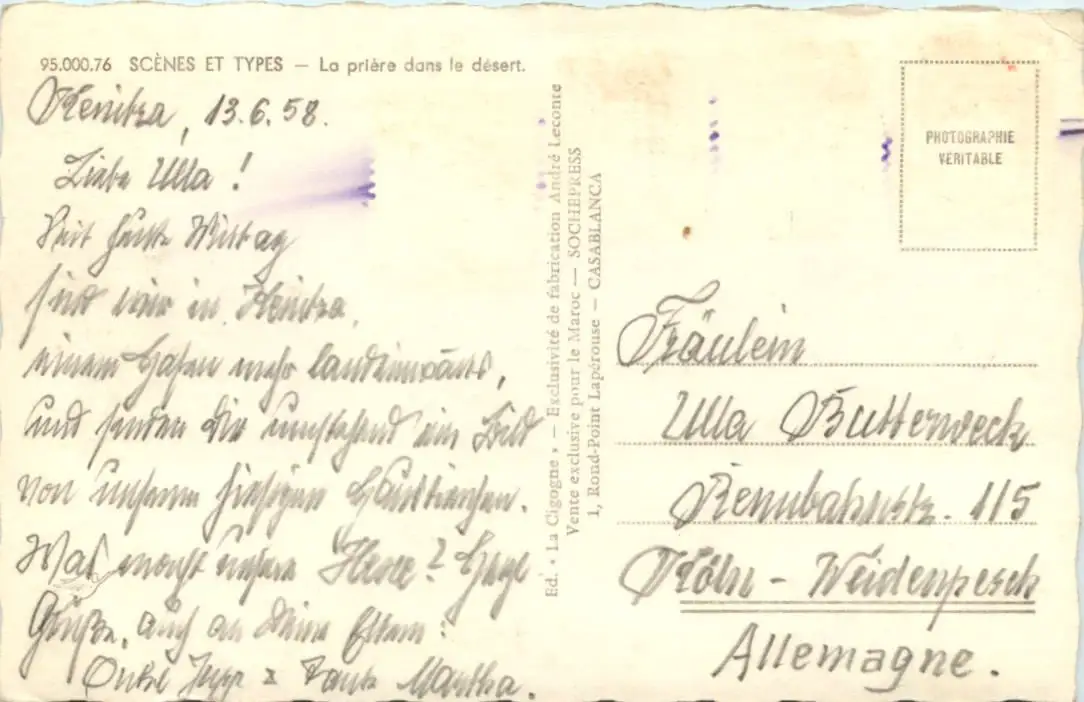 95.000.76 SCÈNES ET TYPES — La prière dans le désert.
Kenitra, 13.6.58.
Liebe Ulla!
Seit heute Mittag
sind wir in Kenitra,
einem Hafen mehr landeinwärts,
und senden Dir umgehend ein Bild
von unseren hiesigen Haustierchen.
Was macht unsere Hexe? Hzgl
Grüße, auch an Deine Eltern
Onkel Jupp & Tante Martha.
Ed. « La Cigogne » — Exclusivité de fabrication André Leconte
Vente exclusive pour le Maroc — SOCHEPRESS
1, Rond-Point Lapérouse — CASABLANCA
PHOTOGRAPHIE
VÉRITABLE
Fräulein
Ulla Butterweck
Rennbahnstr. 115
Köln - Weidenpesch
Allemagne.